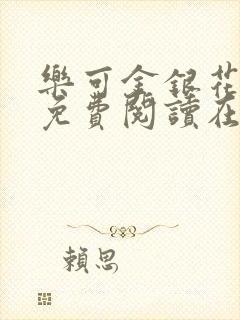 樂可金銀花
免費閱讀在
賴思